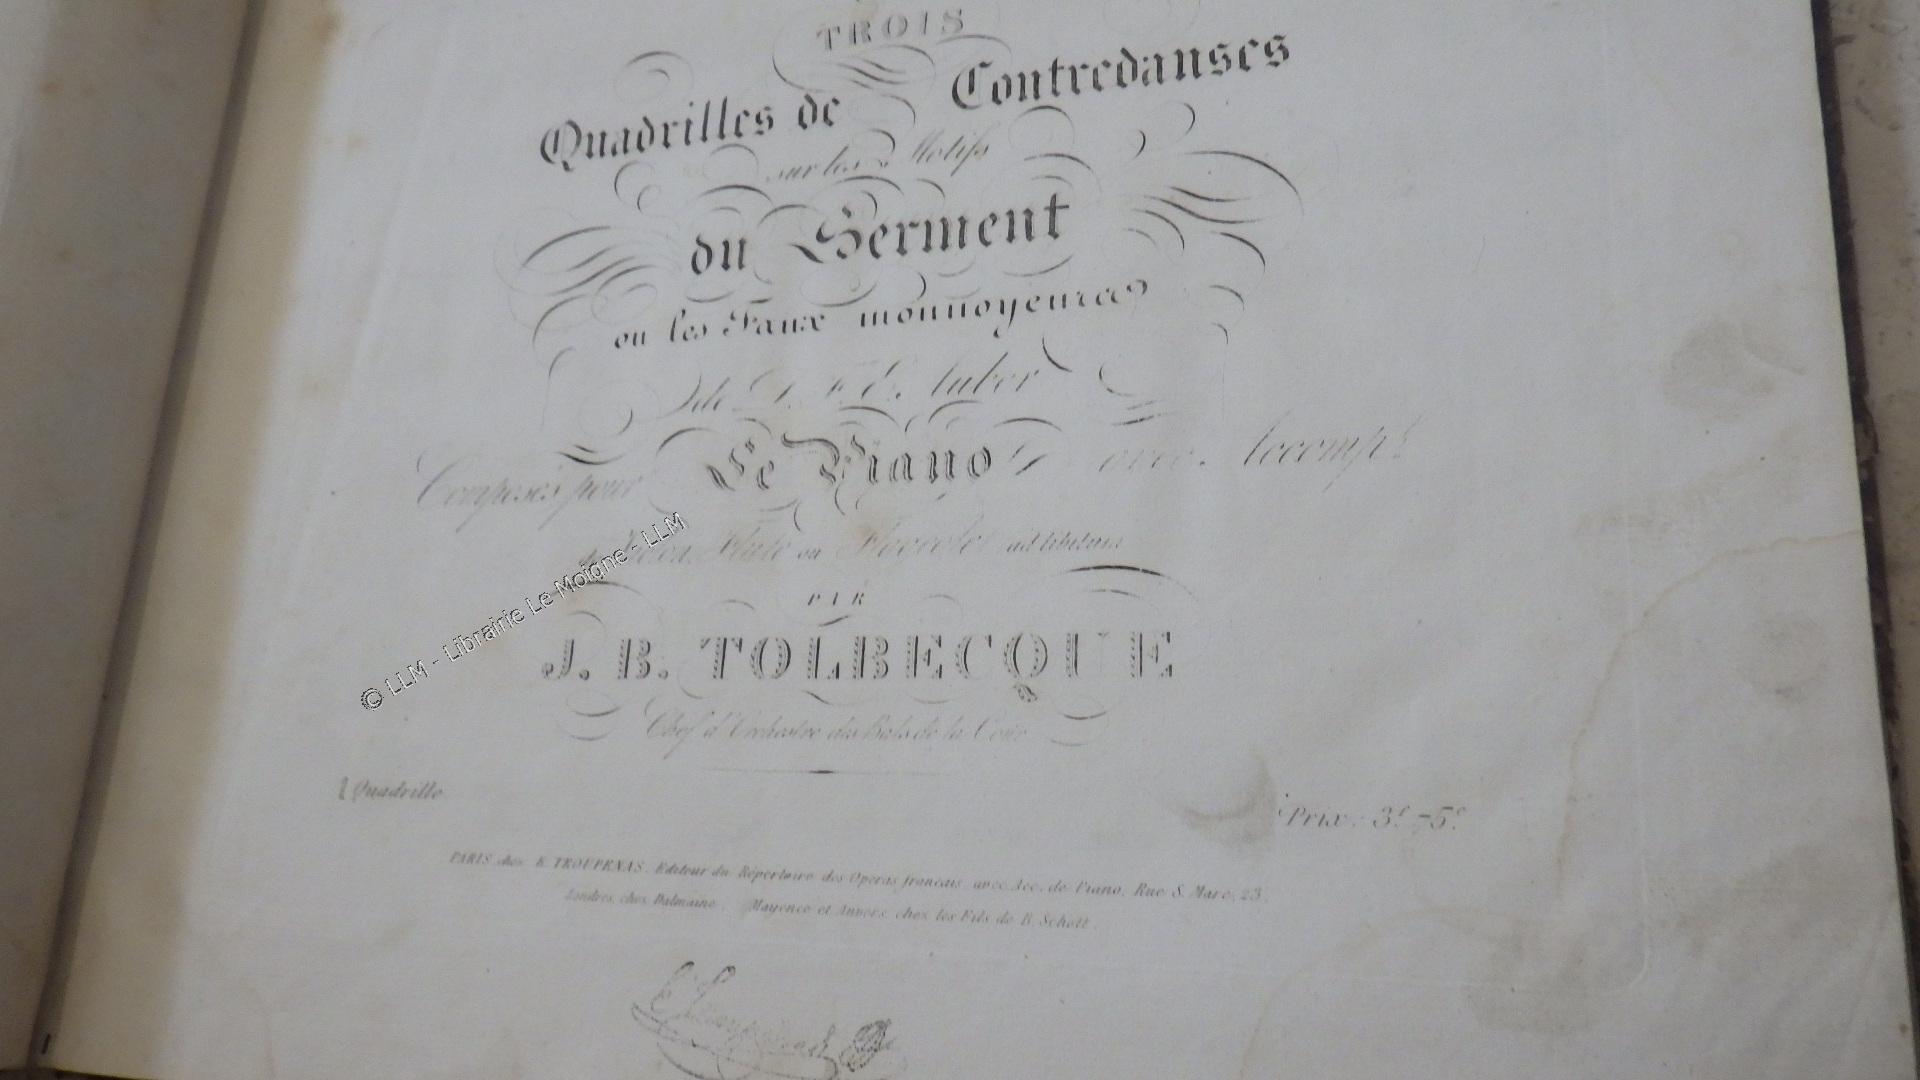 TROIS
Quadrilles de Contredanses
sur les Motifs
du Serment
ou les Faux monnoyeures
de D. F. E. Auber
Composés pour Le Piano avec Accompt
de Violon, Flute ou Flageolet ad libitum
PAR
J. B. TOLBECQUE
Chef d'Orchestre des Bals de la Cour
1 Quadrille
Prix: 3f 75c
PARIS chez E. TROUPENAS, Editeur du Répertoire des Operas français avec Acc. de Piano, Rue S. Marc, 23.
Londres, chez Dalmaine. Mayence et Anvers, chez les Fils de B. Schott.
E. Troupenas
© LLM - Librairie Le Moigne - LLM